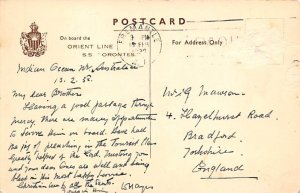 POSTCARD
On board the
ORIENT LINE
S.S. ORONTES
FREMANTLE
For Address Only
Indian Ocean Nr. Australia
13.2.55.
My dear Brother
Having a good passage through
mercy. There are many opportunities
to serve Him on board. Have had
the joy of preaching in the Tourist Class
Greatly helped of the Lord. Trusting you
and your dear ones are well and being
in His most happy service.
Christian love
Mr G Mawson
4. Hazelhurst Road
Bradford
Yorkshire
England